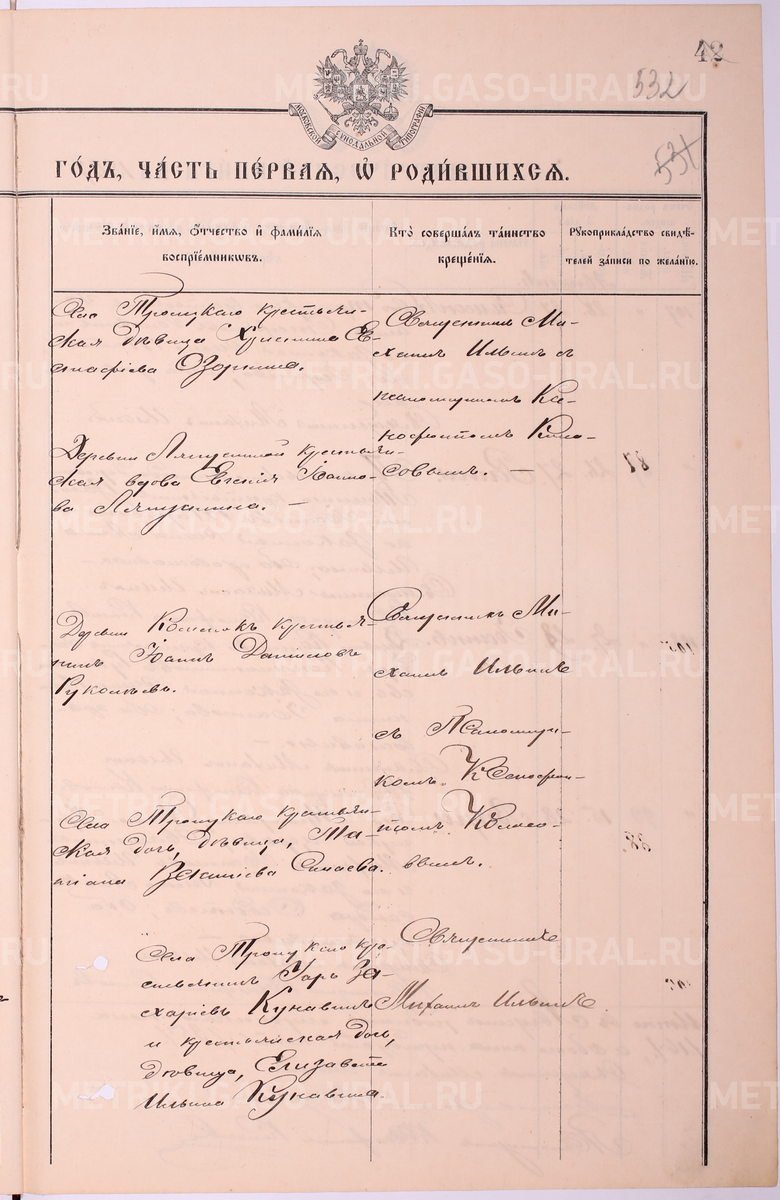 42
532
531
МОСКОВСКОЙ СѴНОДАЛЬНОЙ ТИПОГРАФІИ
ГО́ДЪ, ЧА́СТЬ ПЕ́РВАЯ, Ѽ РОДИ́ВШИХСЯ.
Зва́нїе, и́мя, ѻ҆́тчество и҆ фами́лїя
воспрїе́мникѡвъ.
Кто̀ соверша́лъ та́инство
креще́нїя.
Рꙋкоприкла́дство свидѣ́-
телей за́писи по жела́нїю.
Села Троицкаго крестьян-
ская дѣвица Христина Е-
Озорнина.
Священникъ Ми-
хаилъ Ильинъ съ
псаломщикомъ Ксе-
нофонтомъ Коло-
совымъ. —
Деревни крестьян-
ская вдова Евгенія Іоанно-
ва
Деревни крестья-
нинъ Іоаннъ Даниловъ
Священникъ Ми-
хаилъ Ильинъ
съ Псаломщи-
комъ Ксенофон-
томъ Колосо-
вымъ.
Села Троицкаго крестьян-
ская дочь, дѣвица, Та-
тіана
Села Троицкаго кре-
стьянинъ За-
харіевъ Кунавинъ
и крестьянская дочь,
дѣвица, Елизавета
Ильина Кунавина.
Священникъ
Михаилъ Ильинъ
METRIKI.GASO-URAL.RU